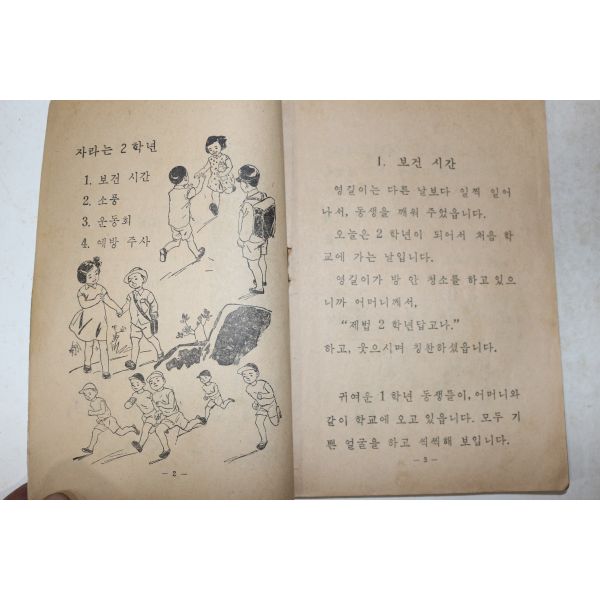 자라는 2 학년
1. 보건 시간
2. 소풍
3. 운동회
4. 예방 주사
— 2 —
1. 보건 시간
영길이는 다른 날보다 일찍 일어
나서, 동생을 깨워 주었읍니다.
오늘은 2 학년이 되어서 처음 학
교에 가는 날입니다.
영길이가 방 안 청소를 하고 있으
니까 어머니께서,
“제법 2 학년답고나.”
하고, 웃으시며 칭찬하셨읍니다.
귀여운 1 학년 동생들이, 어머니와
같이 학교에 오고 있읍니다. 모두 기
쁜 얼굴을 하고 씩씩해 보입니다.
— 3 —